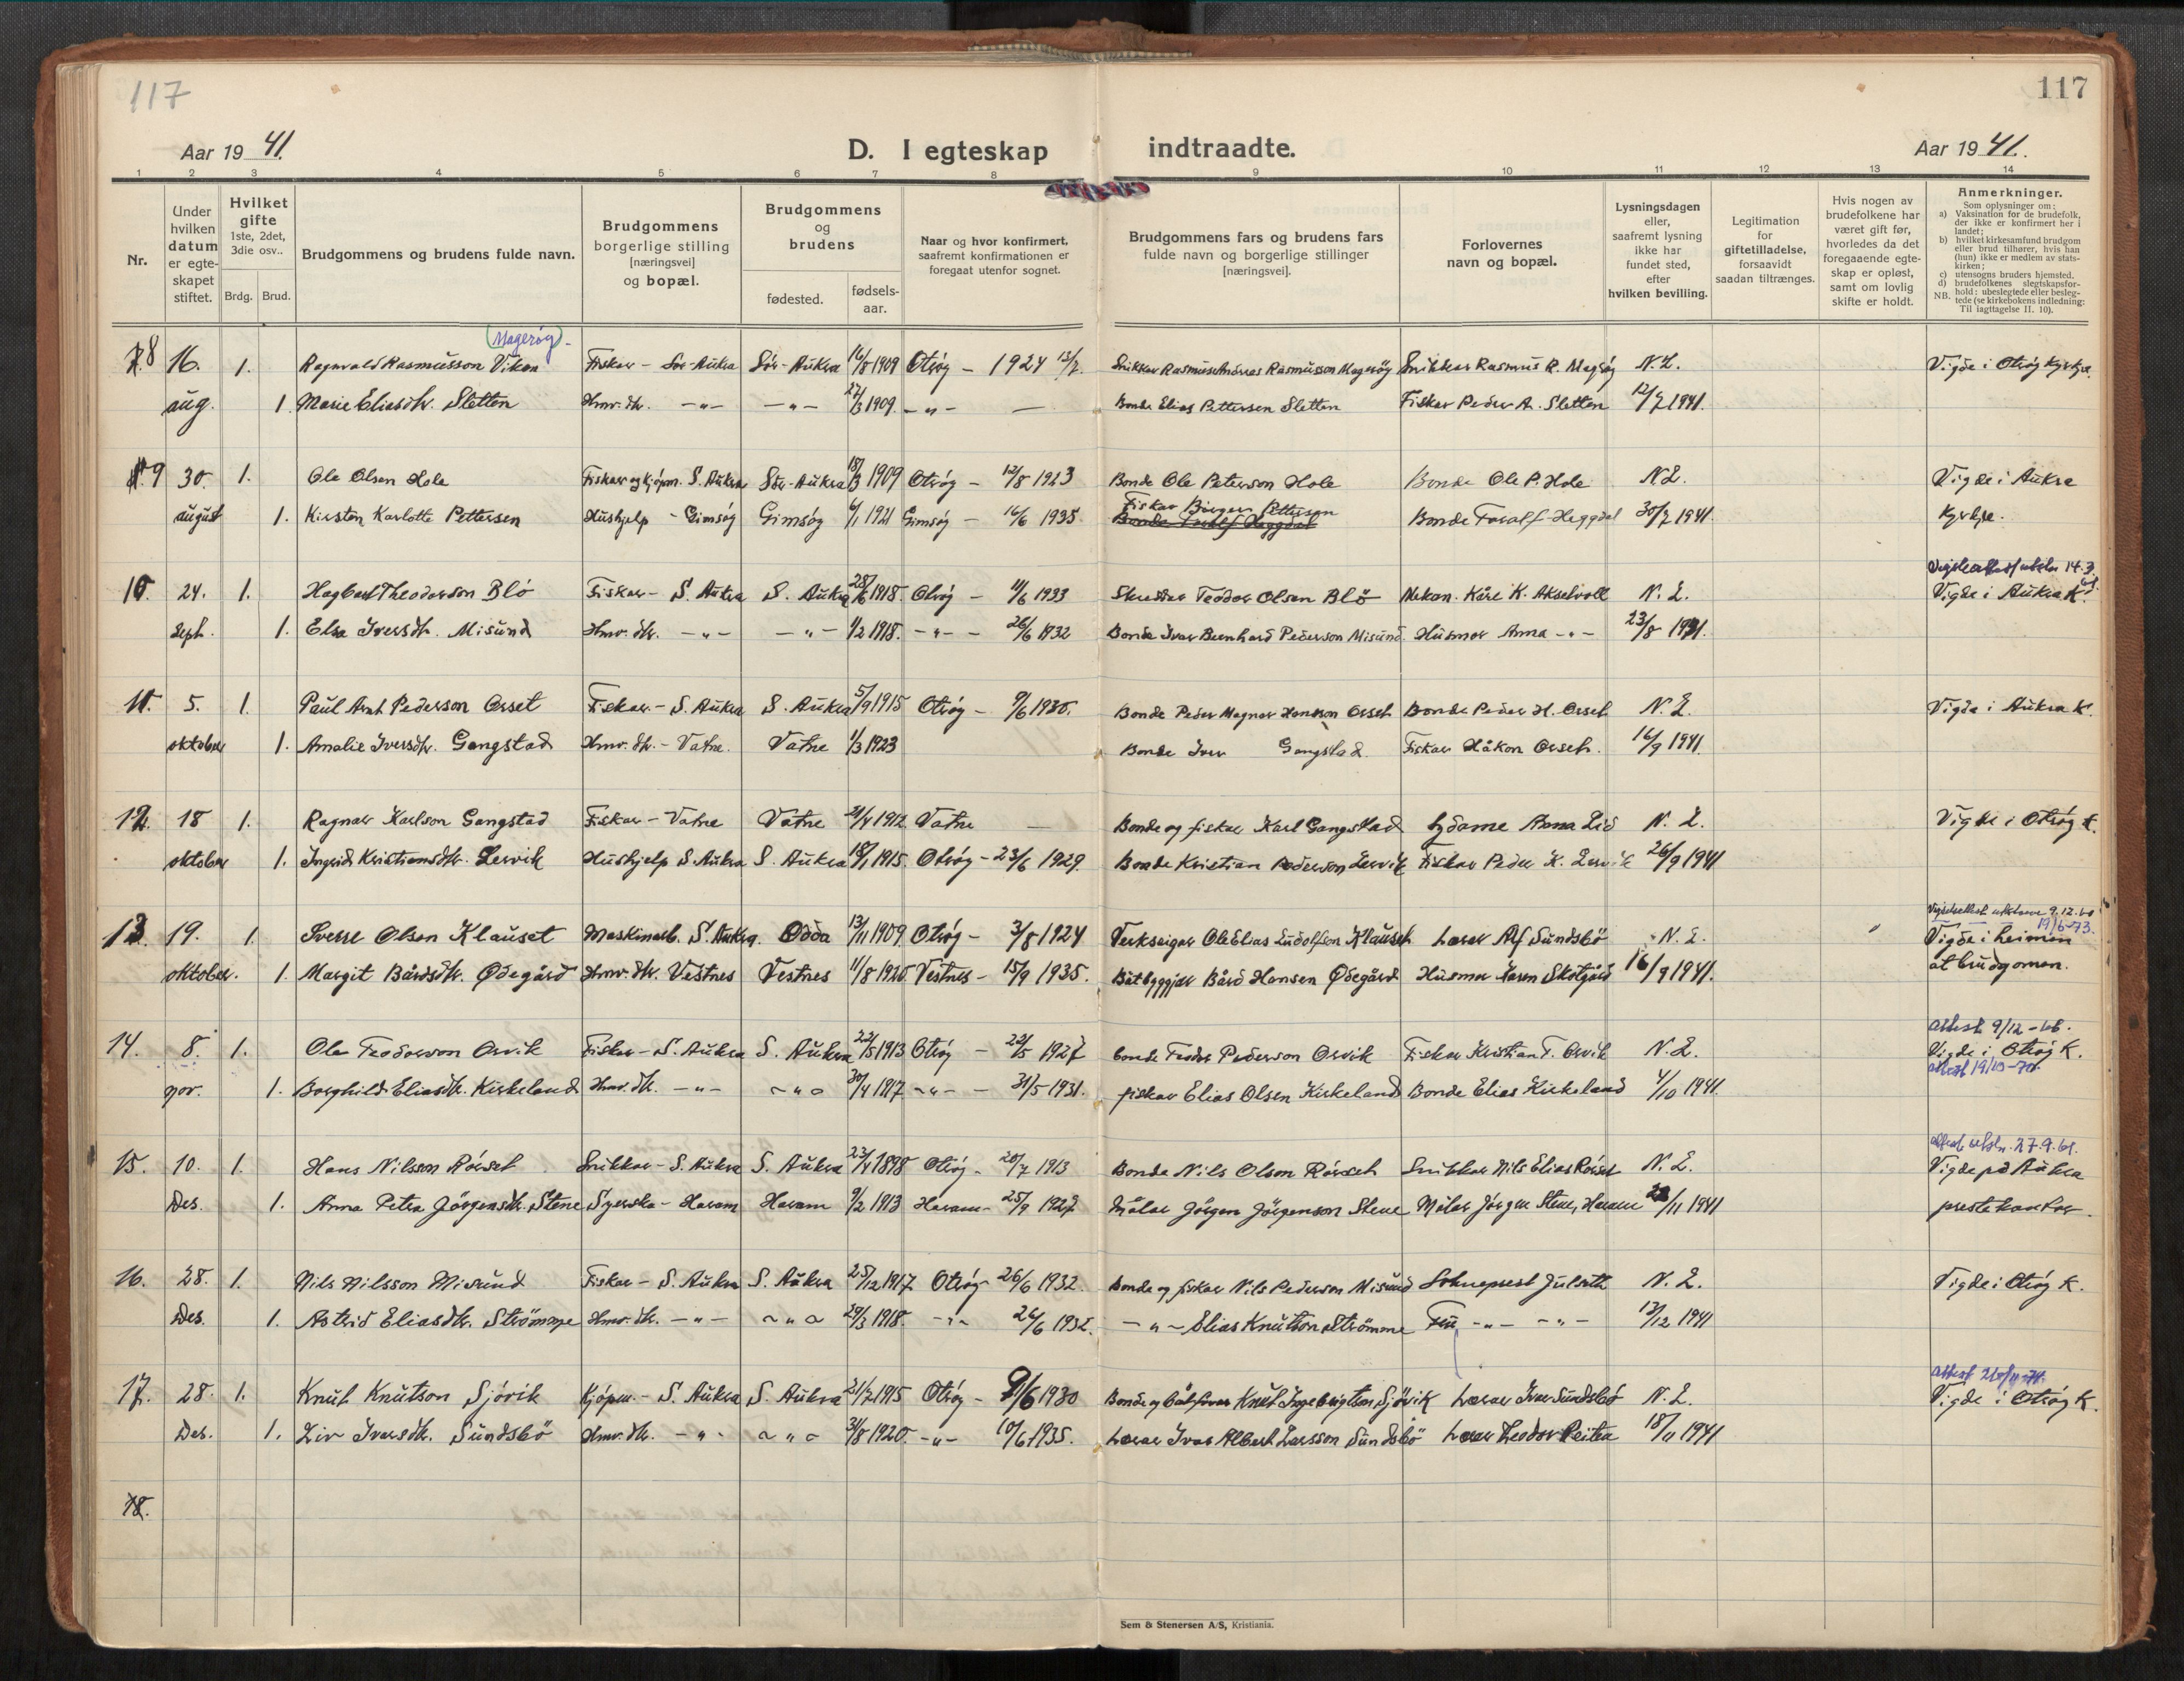 117
117
Aar 19 41.
D. I egteskap indtraadte.
Aar 19 41.
1 2 3 4 5 6 7 8 9 10 11 12 13 14
Nr.
Under hvilken datum er egteskapet stiftet.
Hvilket gifte 1ste, 2det, 3die osv..
Brdg. Brud.
Brudgommens og brudens fulde navn.
Brudgommens borgerlige stilling [næringsvei] og bopæl.
Brudgommens og brudens
fødested. fødselsaar.
Naar og hvor konfirmert, saafremt konfirmationen er foregaat utenfor sognet.
Brudgommens fars og brudens fars fulde navn og borgerlige stillinger [næringsvei].
Forlovernes navn og bopæl.
Lysningsdagen eller, saafremt lysning ikke har fundet sted, efter hvilken bevilling.
Legitimation for giftetilladelse, forsaavidt saadan tiltrænges.
Hvis nogen av brudefolkene har været gift før, hvorledes da det foregaaende egteskap er opløst, samt om lovlig skifte er holdt.
Anmerkninger.
Som oplysninger om:
a) Vaksination for de brudefolk, der ikke er konfirmert her i landet;
b) hvilket kirkesamfund brudgom eller brud tilhører, hvis han (hun) ikke er medlem av statskirken;
c) utensogns bruders hjemsted.
d) brudefolkenes slegtskapsforhold: ubeslegtede eller beslegtede (se kirkebokens indledning:
NB. Til iagttagelse II. 10).
(Magerøy)
8 16. 1. Ragnvald Rasmusson Viken Fiskar - Sør-Aukra Sør-Aukra 16/8 1909 Otrøy - 1924 Snikkar Rasmus Andreas Rasmusson Magerøy Snikkar Rasmus R. Magerøy N.L. Vigde i Otrøy kyrkje.
aug. 1. Marie Eliasdtr. Sletten Hmv. dtr. -"- -"- 27/3 1909 -"- - Bonde Elias Pettersen Sletten Fiskar Peder A. Sletten 12/7 1941.
9 30. 1. Ole Olsen Hole Fiskar og kjøpm. S. Aukra Sør-Aukra 18/3 1909 Otrøy - 12/8 1923 Bonde Ole Peterson Hole Bonde Ole P. Hole N.L. Vigde i Aukra
Fiskar Birger Petterson
august 1. Kirsten Karlotte Pettersen Hushjelp - Gimsøy Gimsøy 6/1 1921 Gimsøy - 16/6 1935 Bonde Toralf Heggdal Bonde Toralf Heggdal 30/7 1941. Kyrkje.
14.3.
10. 24. 1. Hagbart Theodorson Blø Fiskar - S. Aukra S. Aukra 28/6 1918. Otrøy - 11/6 1933 Teodor Olsen Blø Mekan. Kåre K. Akselvoll N.L. Vigde i Aukra K.
sept. 1. Elsa Iversdtr. Misund Hmv. dtr. -"- -"- 1/2 1918. -"- - 26/6 1932 Bonde Ivar Bernhard Pederson Misund Husmor Anna -"- 23/8 1941.
11. 5. 1. Paul Arnt Pederson Orset Fiskar. - S. Aukra S. Aukra 5/9 1915 Otrøy - 9/6 1930. Bonde Peder Magnar Hansson Orset Bonde Peder H. Orset N.L. Vigde i Aukra K.
oktober 1. Amalie Iversdtr. Gangstad Hmv. dtr. - Vatne. Vatne 1/3 1923 Bonde Iver Gangstad Fiskar Håkon Orset. 16/9 1941.
12. 18 1. Ragnar Karlson Gangstad Fiskar - Vatne Vatne 21/4 1912 Vatne - Bonde og fiskar Karl Gangstad Sydame Anna Lid N.L. Vigde i Otrøy K.
oktober 1. Ingrid Kristiansdtr. Lervik Hushjelp S. Aukra S. Aukra 18/1 1915. Otrøy - 23/6 1929. Bonde Kristian Pederson Lervik Fiskar Peder K. Lervik 26/9 1941
Vigselsattest utskreve 9.12.60
19/6-73.
13. 19. 1. Sverre Olson Klauset Maskinarb. S. Aukra. Odda 13/11 1909 Otrøy - 3/8 1924 Verkseigar Ole Elias Ludolfson Klauset Lærar Alf Sundsbø N.L. Vigde i heimen
oktober. 1. Margit Bårdsdtr. Ødegård Hmv. dtr. Vestnes Vestnes 11/8 1920 Vestnes - 15/9 1935. Båtbyggjar Bård Hansen Ødegård Husmor Karen Skotgård 16/9 1941. åt brudgomen.
Attest 9/12-66.
14. 8. 1. Ole Teodorson Orvik Fiskar - S. Aukra S. Aukra 22/5 1913 Otrøy - 22/5 1927 bonde Teodor Pederson Orvik Fiskar Kristian T. Orvik N.L. Vigde i Otrøy K.
attest 19/10-70.
nov. 1. Borghild Eliasdtr. Kirkeland Hmv. dtr. -"- -"- 30/4 1917 -"- - 31/5 1931. fiskar Elias Olsen Kirkeland Bonde Elias Kirkeland 4/10 1941.
attest utskr. 27.9.61.
15. 10. 1. Hans Nilsson Rørset Snikkar - S. Aukra S. Aukra 23/4 1898 Otrøy - 20/7 1913 Bonde Nils Olson Rørset Snikkar Nils Elias Rørset N.L. Vigde på Aukra
Des. 1. Anna Petra Jørgensdtr. Stene Syerska - Haram Haram 9/2 1913 Haram - 25/9 1927 Målar Jørgen Jørgenson Stene Målar Jørgen Stene, Haram 22/11 1941 prestekontor.
16. 28. 1. Nils Nilsson Misund Fiskar - S. Aukra S. Aukra 25/12 1917 Otrøy - 26/6 1932. Bonde og fiskar Nils Pederson Misund Sokneprest Julseth N.L. Vigde i Otrøy K.
Des. 1. Astrid Eliasdtr. Strömme Hmv. dtr. -"- -"- 29/3 1918. -"- 26/6 1932. -"- Elias Knutson Strömme Fru -"- -"- 13/12 1941
Attest 26/11-74.
17. 28. 1. Knut Knutson Sjøvik Kjøpm. - S. Aukra S. Aukra 21/7 1915 Otrøy - 9/6 1930 Bonde og båtførar Knut Ingebrigtson Sjøvik Lærar Ivar Sundsbø N.L. Vigde i Otrøy K.
Des. 1. Liv Ivarsdtr. Sundsbö Hmv. dtr. -"- -"- 31/8 1920. -"- 10/6 1935. Lærar Ivar Albert Larsson Sundsbö Lærar Teodor Reiten 18/11 1941
18.
Sem & Stenersen A/S, Kristiania.